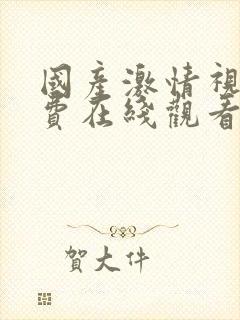 國產激情視
費在綫觀看
賀大件